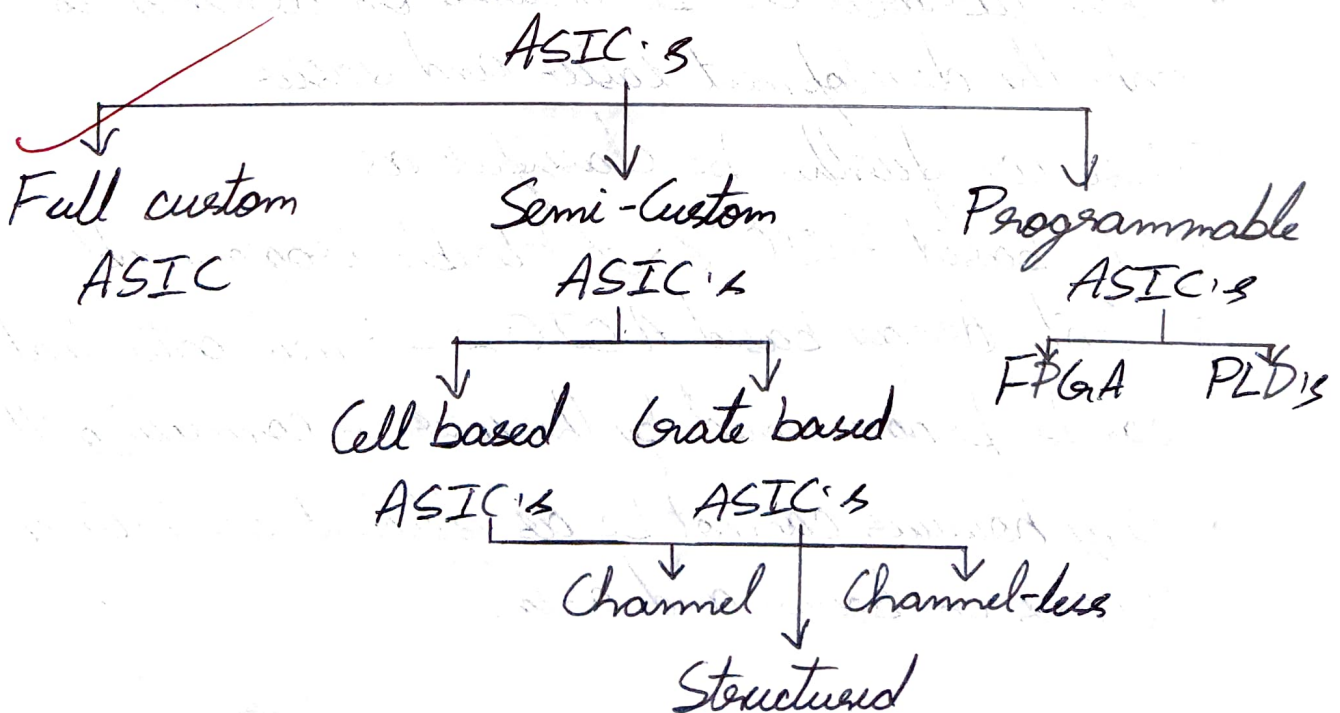 ASIC's
Full custom
ASIC
Semi-Custom
ASIC's
Programmable
ASIC's
FPGA
PLD's
Cell based
ASIC's
Gate based
ASIC's
Channel
Channel-less
Structured